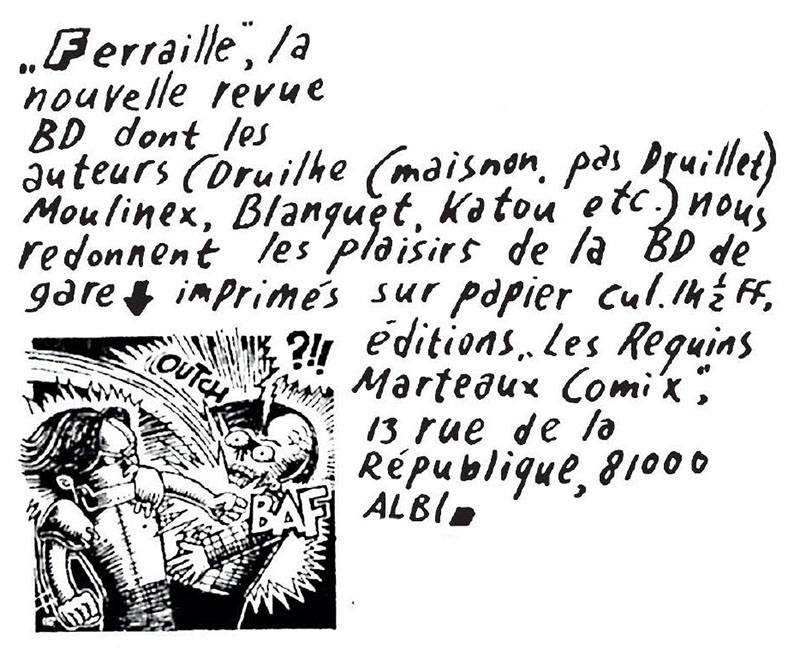 „Ferraille", la
nouvelle revue
BD dont les
auteurs (Druilhe (maisnon, pas Druillet)
Moulinex, Blanquet, Katou etc.) nous
redonnent les plaisirs de la BD de
gare imprimés sur papier cul. 14 ½ FF,
éditions „Les Requins
Marteaux Comix",
13 rue de la
République, 81000
ALBI.
?!!
OUTCH
BAF